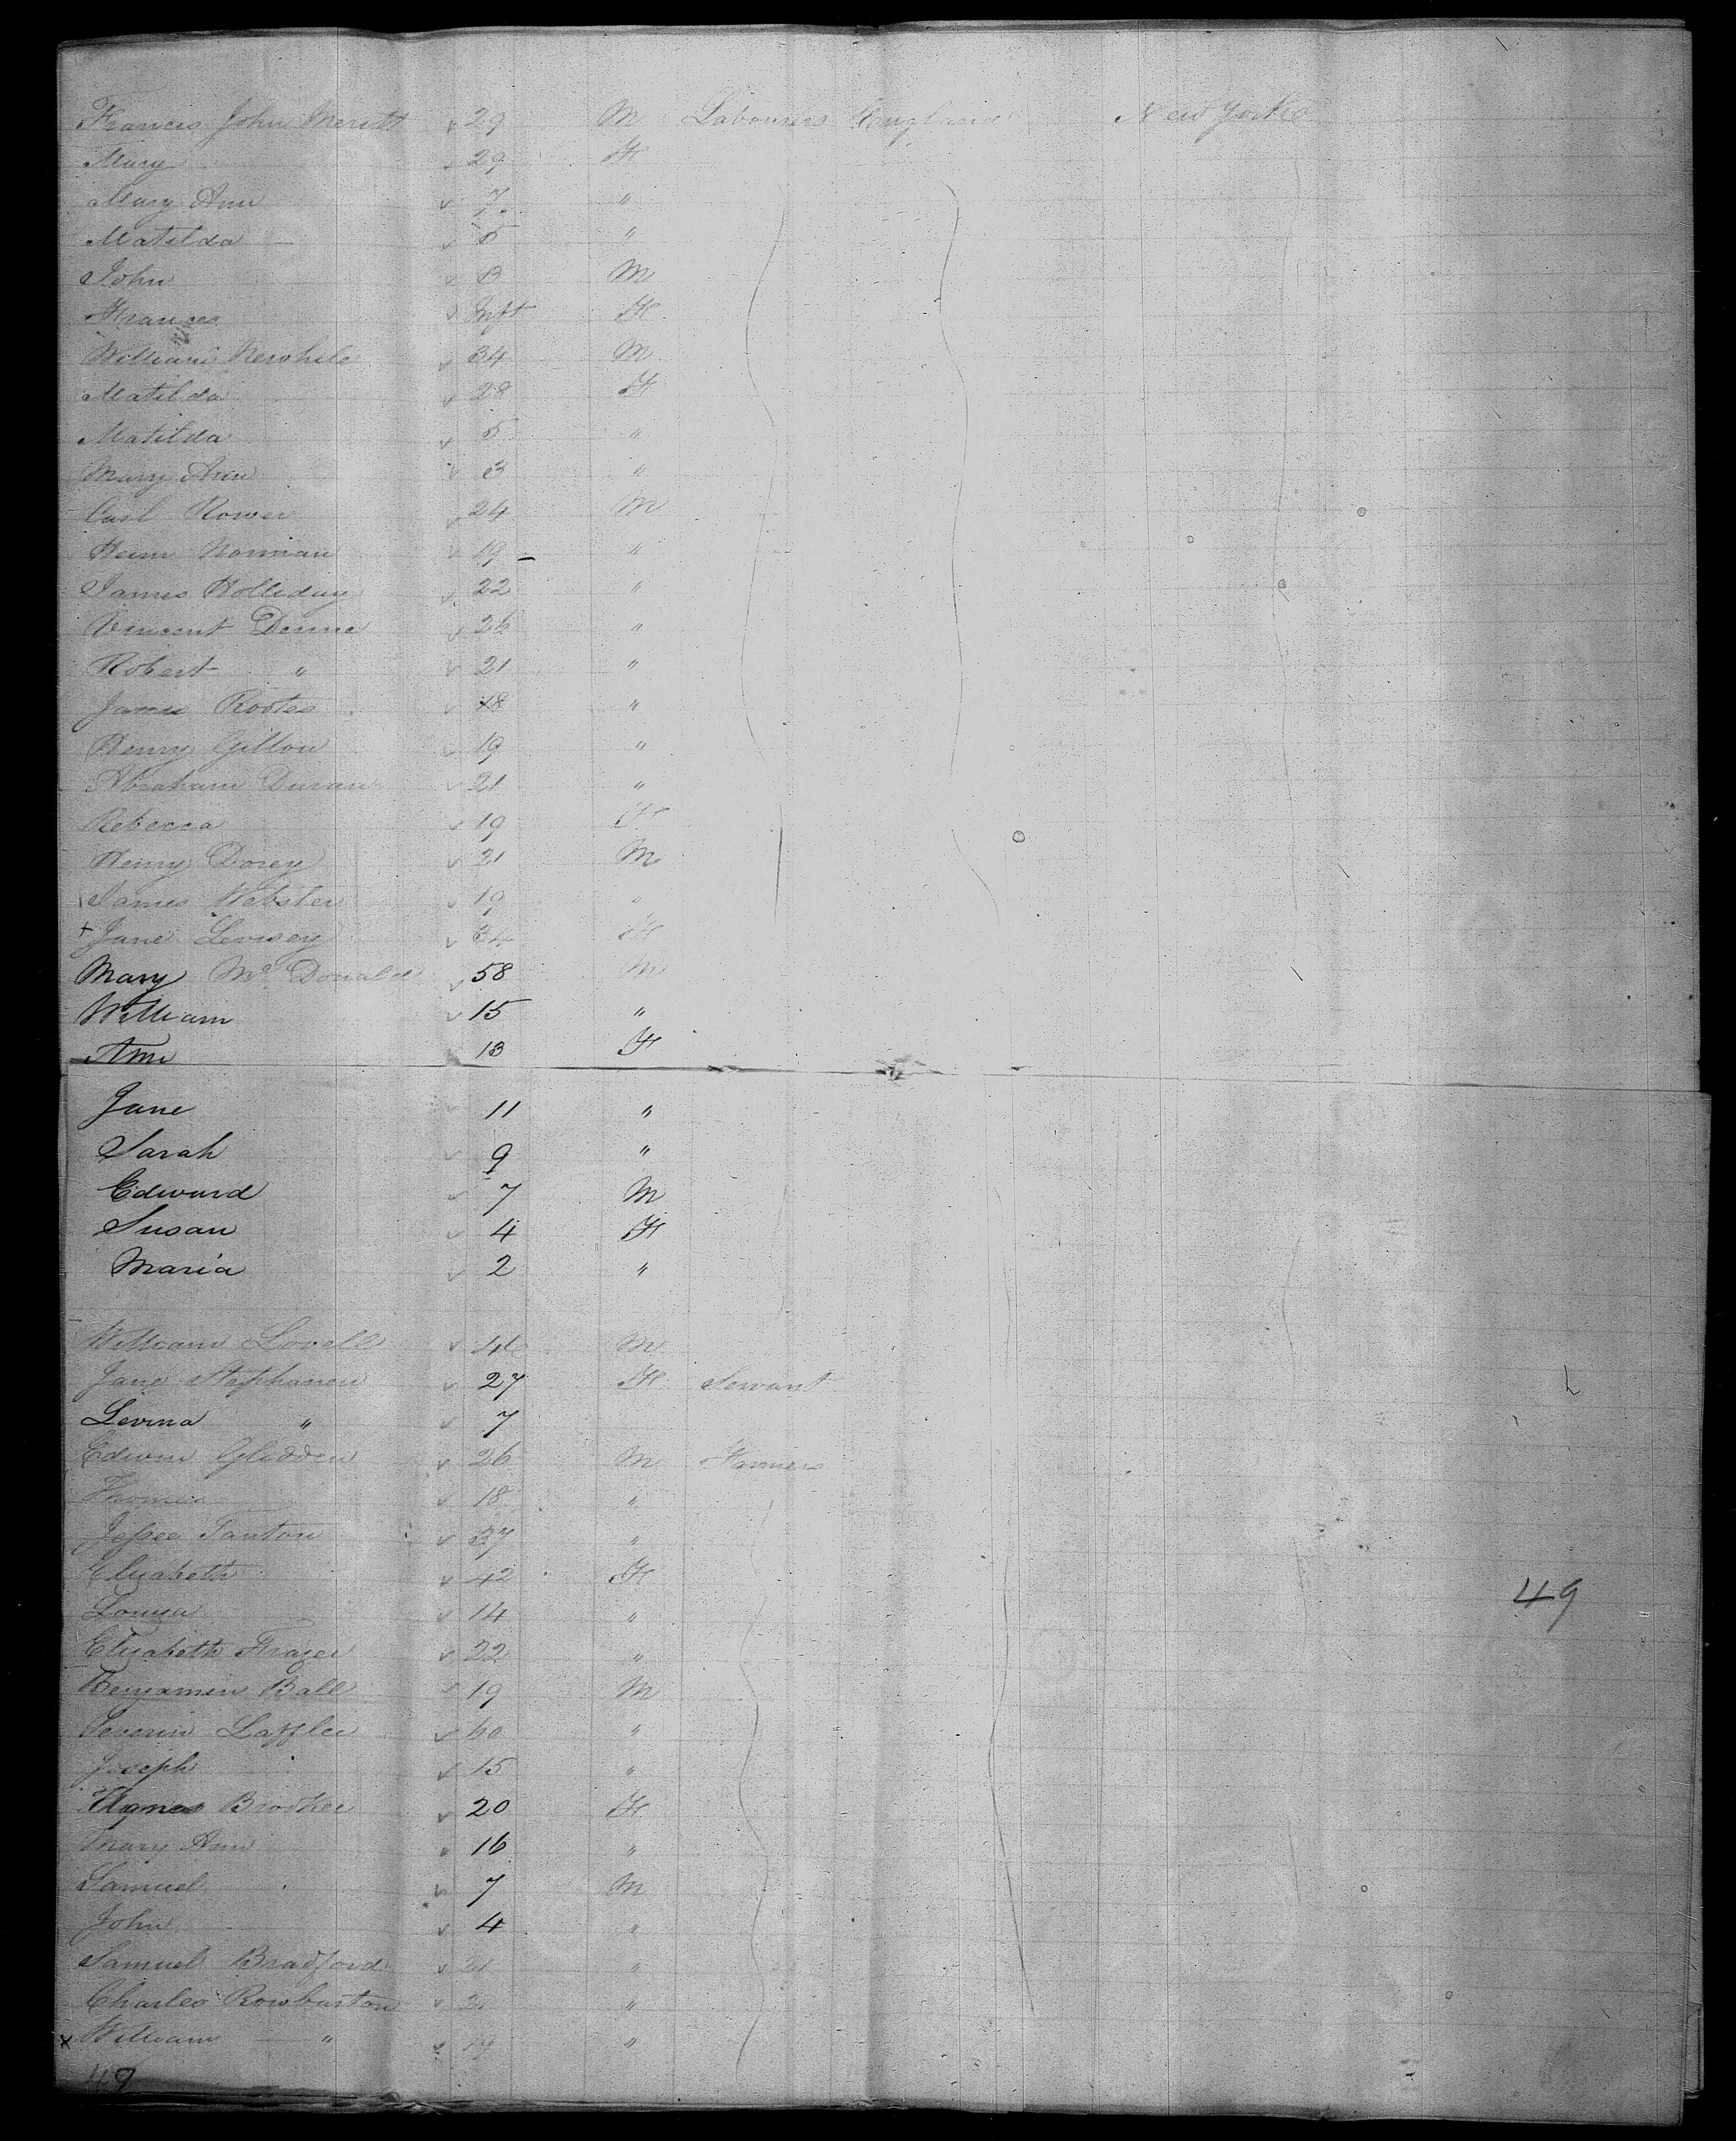 Francis John Meritt 29 M Labourers England New York
Mary 29 F
Mary Ann 7 "
Matilda 5 "
John 3 M
Frances Inft F
William 34 M
Matilda 28 F
Matilda 5 "
Mary Ann 3 "
Carl 24 M
Norman 19 "
James Holliday 22 "
Vincent Denne 26 "
Robert " 21 "
James Rootes 18 "
Henry Gillow 19 "
Abraham 21 "
Rebecca 19 F
Henry Dorey 21 M
James Webster 19 "
+ Jane Levisey 34 F
Mary McDonald 58 M
William 15 "
Ann 13 F
Jane 11 "
Sarah 9 "
Edward 7 M
Susan 4 F
Maria 2 "
William Lovell M
Jane 27 F Servant
Levina " 7
Edwin Glidden 26 M Farmers
Thomas 18 "
Jessee Tanton 37 "
Elizabeth 42 F
Louisa 14 "
49
Elizabeth Frazer 22 "
Benjamin Ball 19 M
Severin Laffler 60 "
Joseph 15 "
Agnes 20 F
Mary Ann 16 "
Samuel 7 M
John 4 "
Samuel Bradford 21 "
Charles Rowburton 21 "
x William " 19 "
49